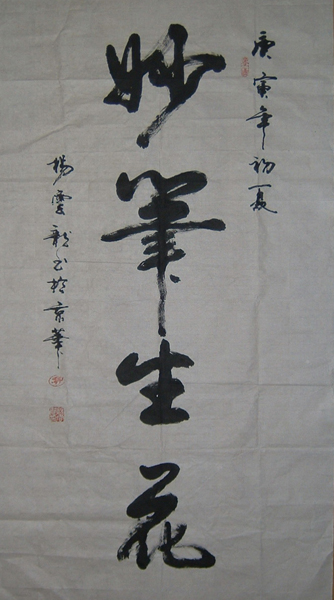 庚寅年初夏
妙筆生花
楊雲龍书於京華